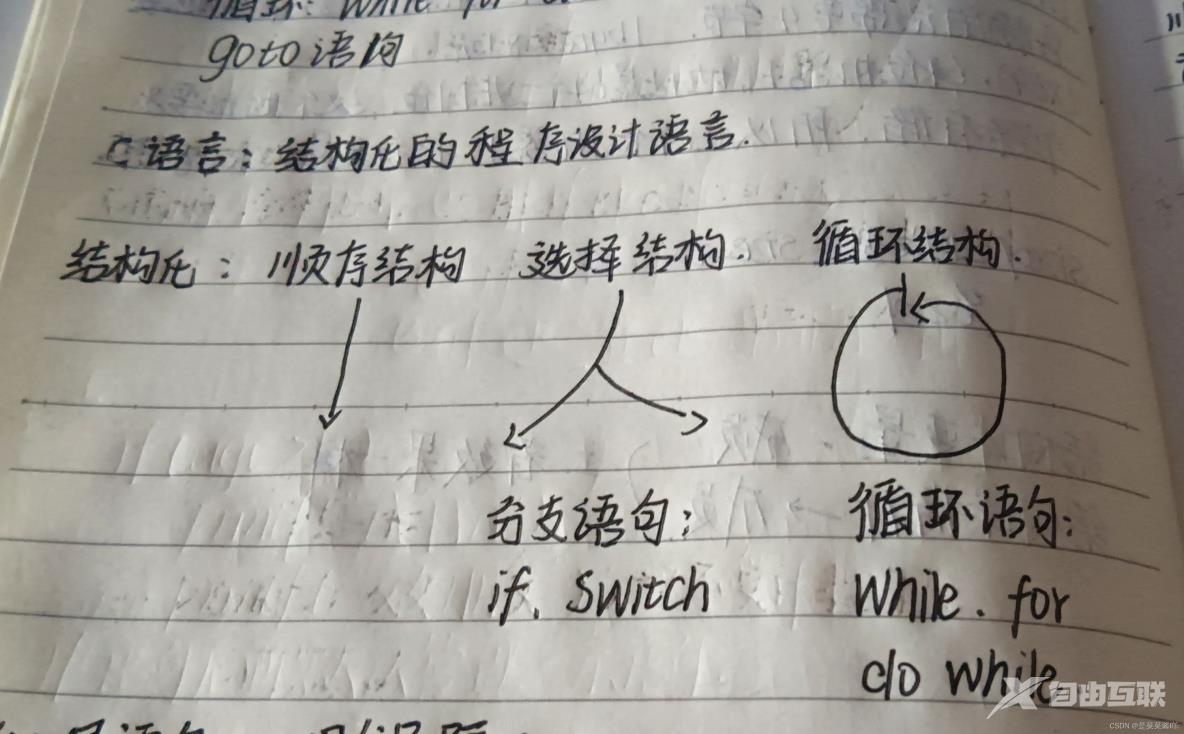 循环: while for
goto语句
C语言：结构化的程序设计语言.
结构化：顺序结构 选择结构. 循环结构.
分支语句：
if. switch
循环语句：
while. for
do while
自由互联